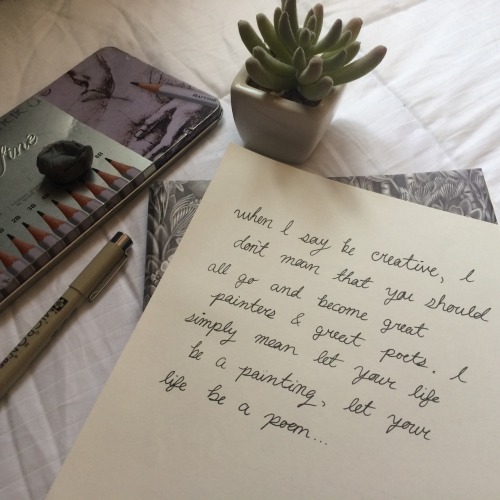 fine
2B
B
when I say be creative, I
don't mean that you should
all go and become great
painters & great poets. I
simply mean let your life
be a painting, let your
life be a poem...